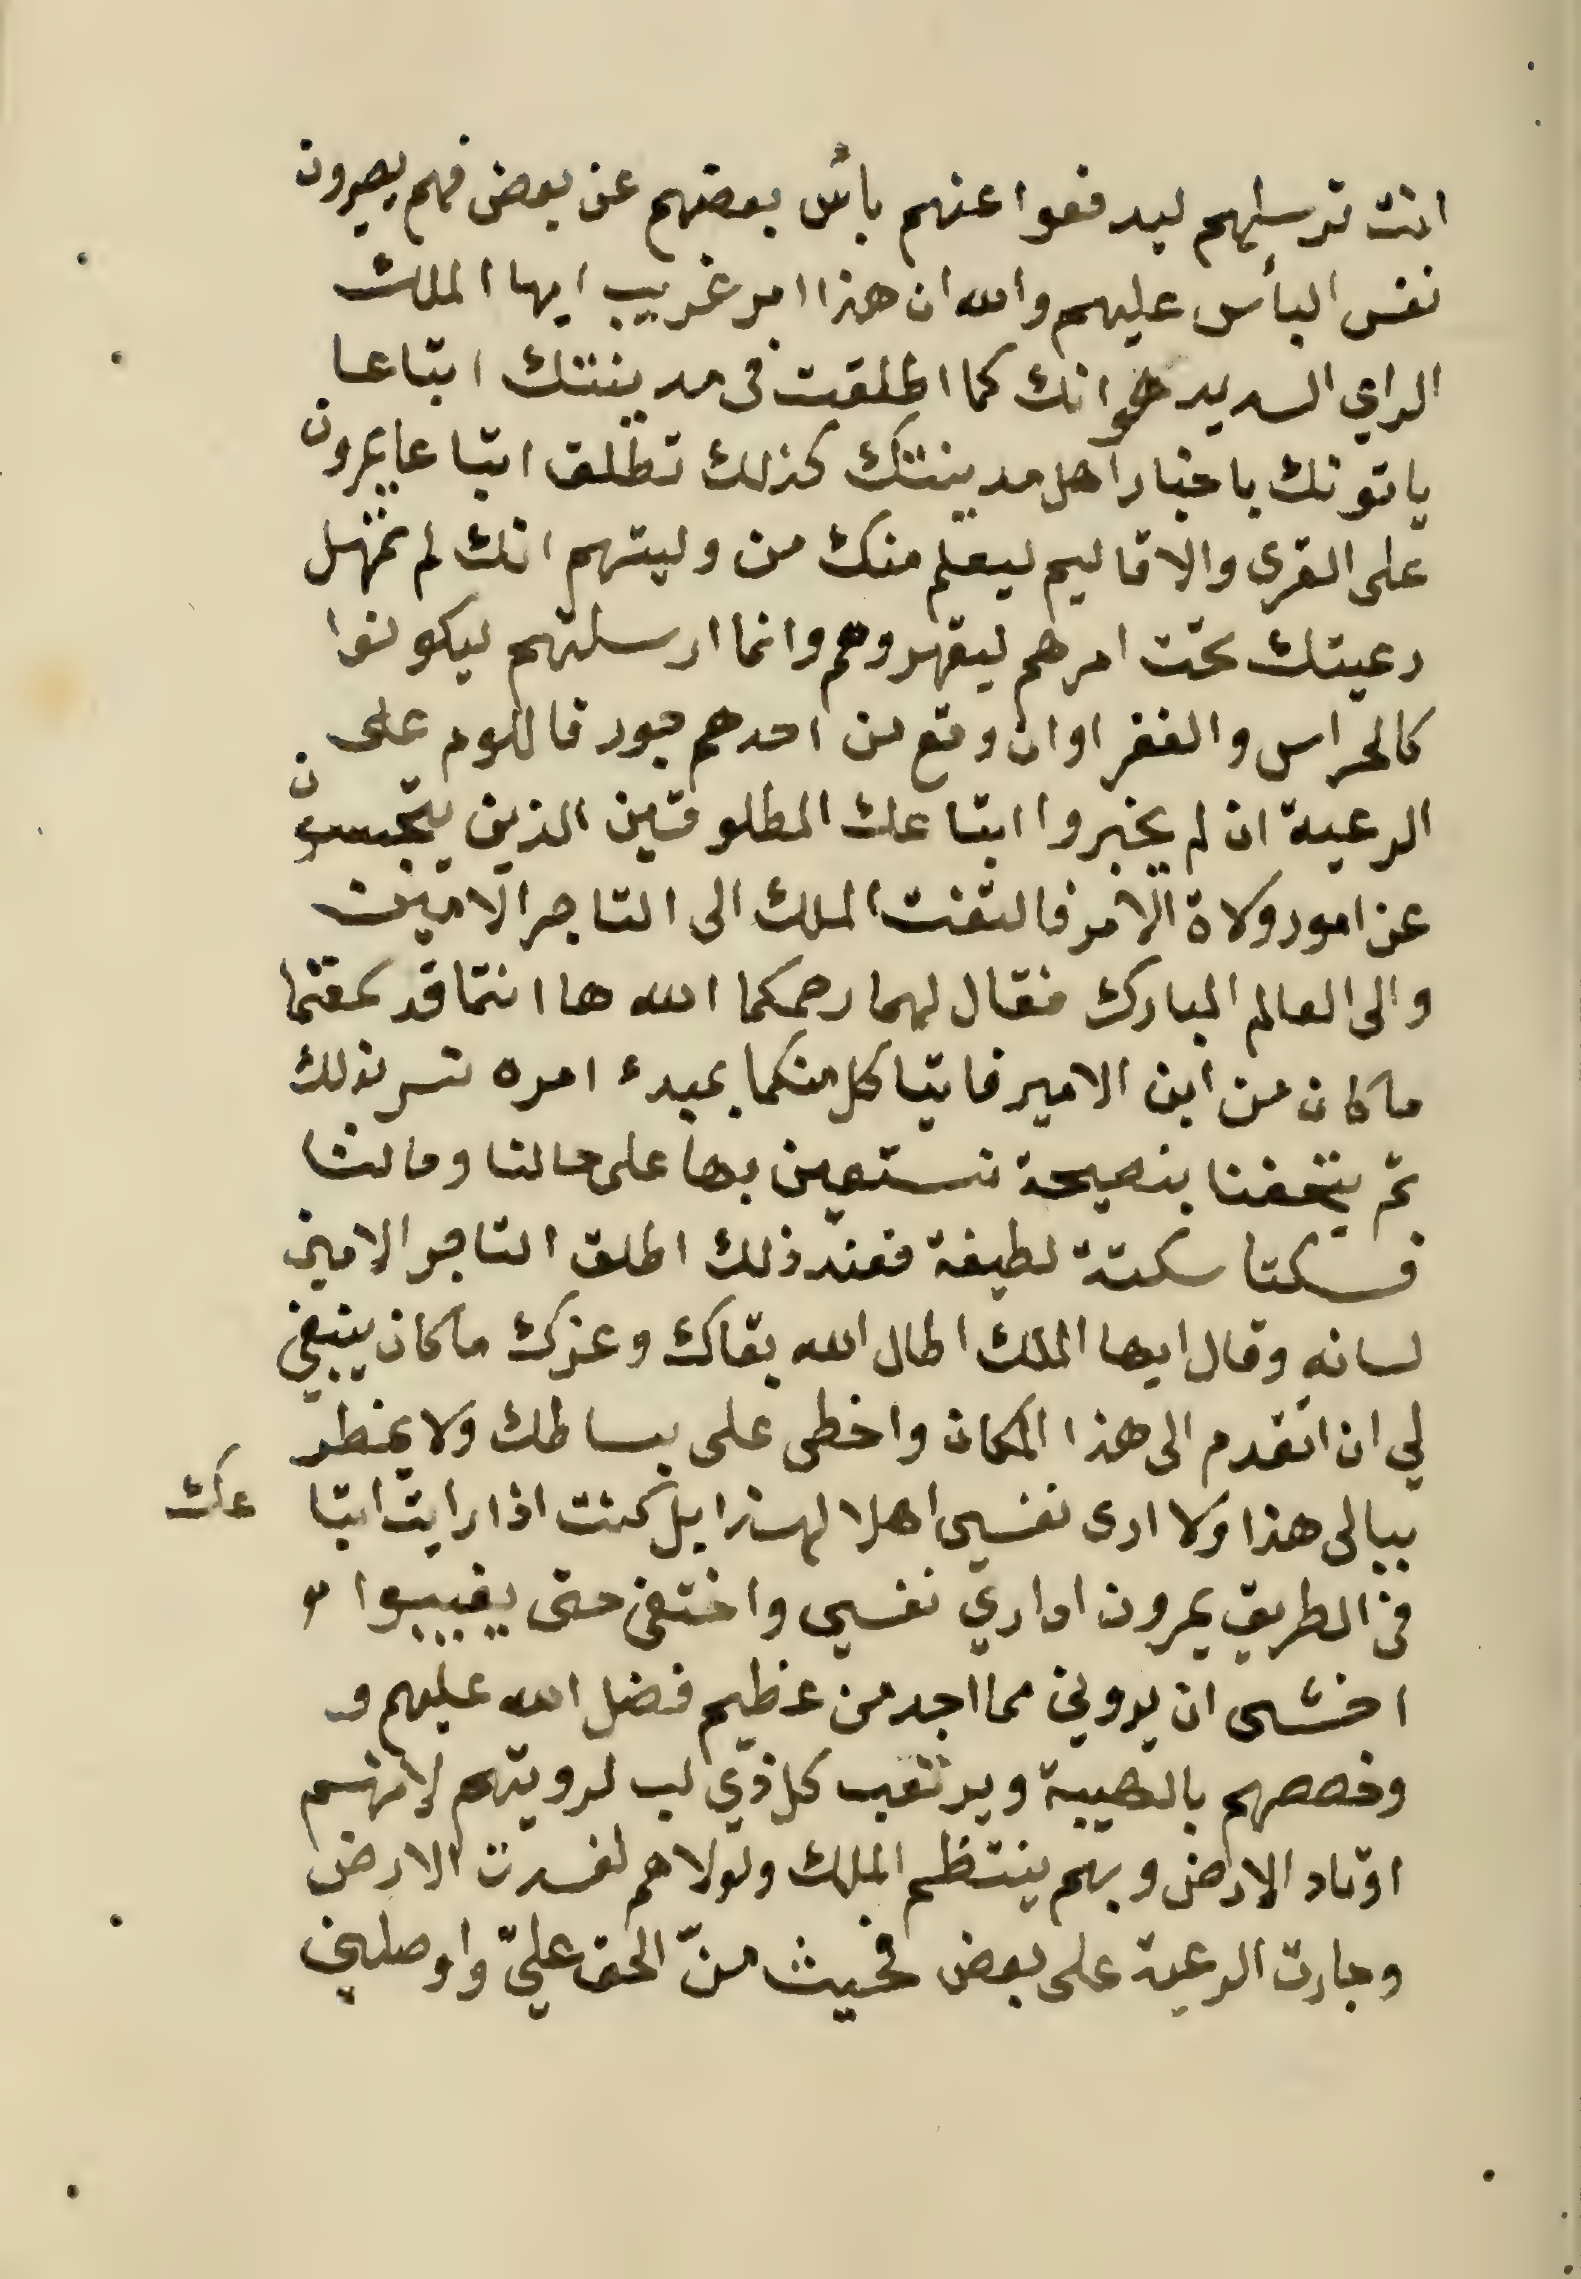 انت ترسلهم ليدفعوا عنهم بأس بعضهم عن بعض فهم يصيرون
نفس البأس عليهم والله ان هذا امر غريب ايها الملك
الراي السديد هو انك كما اطلقت في مدينتك اتباعا
ياتونك باخبار اهل مدينتك كذلك تطلق اتباعا يمرون
على القرى والاقاليم ليعلم منك من وليتهم انك لم تمهل
رعيتك تحت امرهم ليقهروهم وانما ارسلتهم ليكونوا
كالحراس والغفرا وان وقع من احدهم جور فاللوم على
الرعية ان لم يخبروا اتباعك المطلوقين الذين يتجسسون
عن امور ولاة الامر فالتفت الملك الى التاجر الامين
والى العالم المبارك فقال لهما رحمكما الله ها انتما قد سمعتما
ما كان من ابن الامير فاتيا كل منكما بمبدء امره نسر بذلك
ثم يتحفنا بنصيحة نستعين بها على حالنا ومالنا
فسكتا سكتة لطيفة فعند ذلك اطلق التاجر الامين
لسانه وقال ايها الملك اطال الله بقاك وعزك ما كان ينبغي
لي ان اتقدم الى هذا المكان واخطى على بساطك ولا يخطر
ببالى هذا ولا ارى نفسي اهلا لهذا بل كنت اذا رايت اتبا عك
في الطريق يمرون اواري نفسي واختفي حتى يغيبوا
اخشى ان يروني مما اجد من عظيم فضل الله عليهم و
وخصصهم بالهيبة ويرتعب كل ذي لب لرويتهم لانهم
اوتاد الارض وبهم ينتظم الملك ولولاهم لفسدت الارض
وجارت الرعية على بعض فحيث منّ الحق عليّ واوصلني